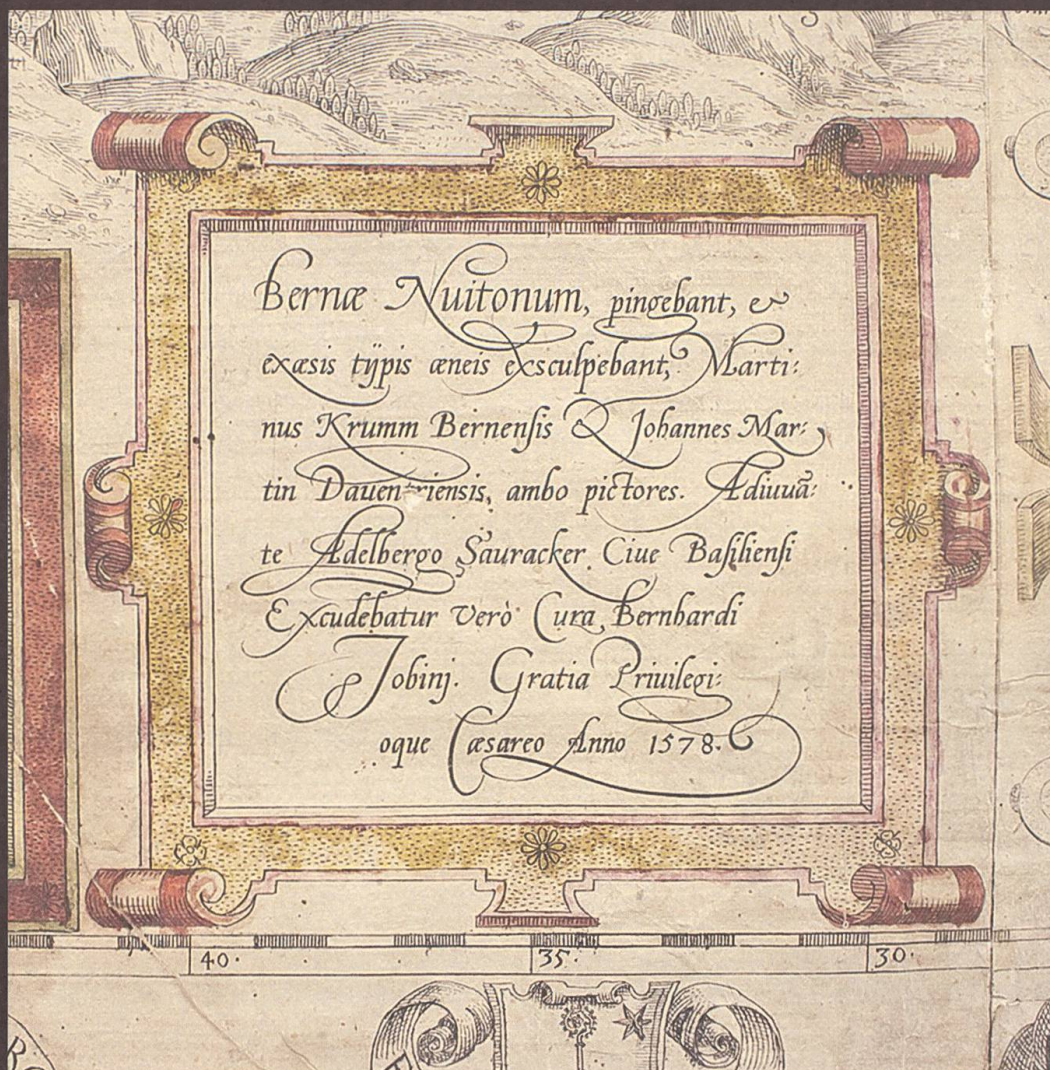 Bernæ Nuitonum, pingebant, &
exæsis tÿpis æneis exsculpebant, Marti:
nus Krumm Bernenſis & Johannes Mar:
tin Dauentriensis, ambo pictores. Adiuuā:
te Adelbergo Sauracker Ciue Baſilienſi
Excudebatur verò Cura Bernhardi
Jobinj. Gratia Priuilegi:
oque Cæsareo Anno 1578.
40. 35. 30.